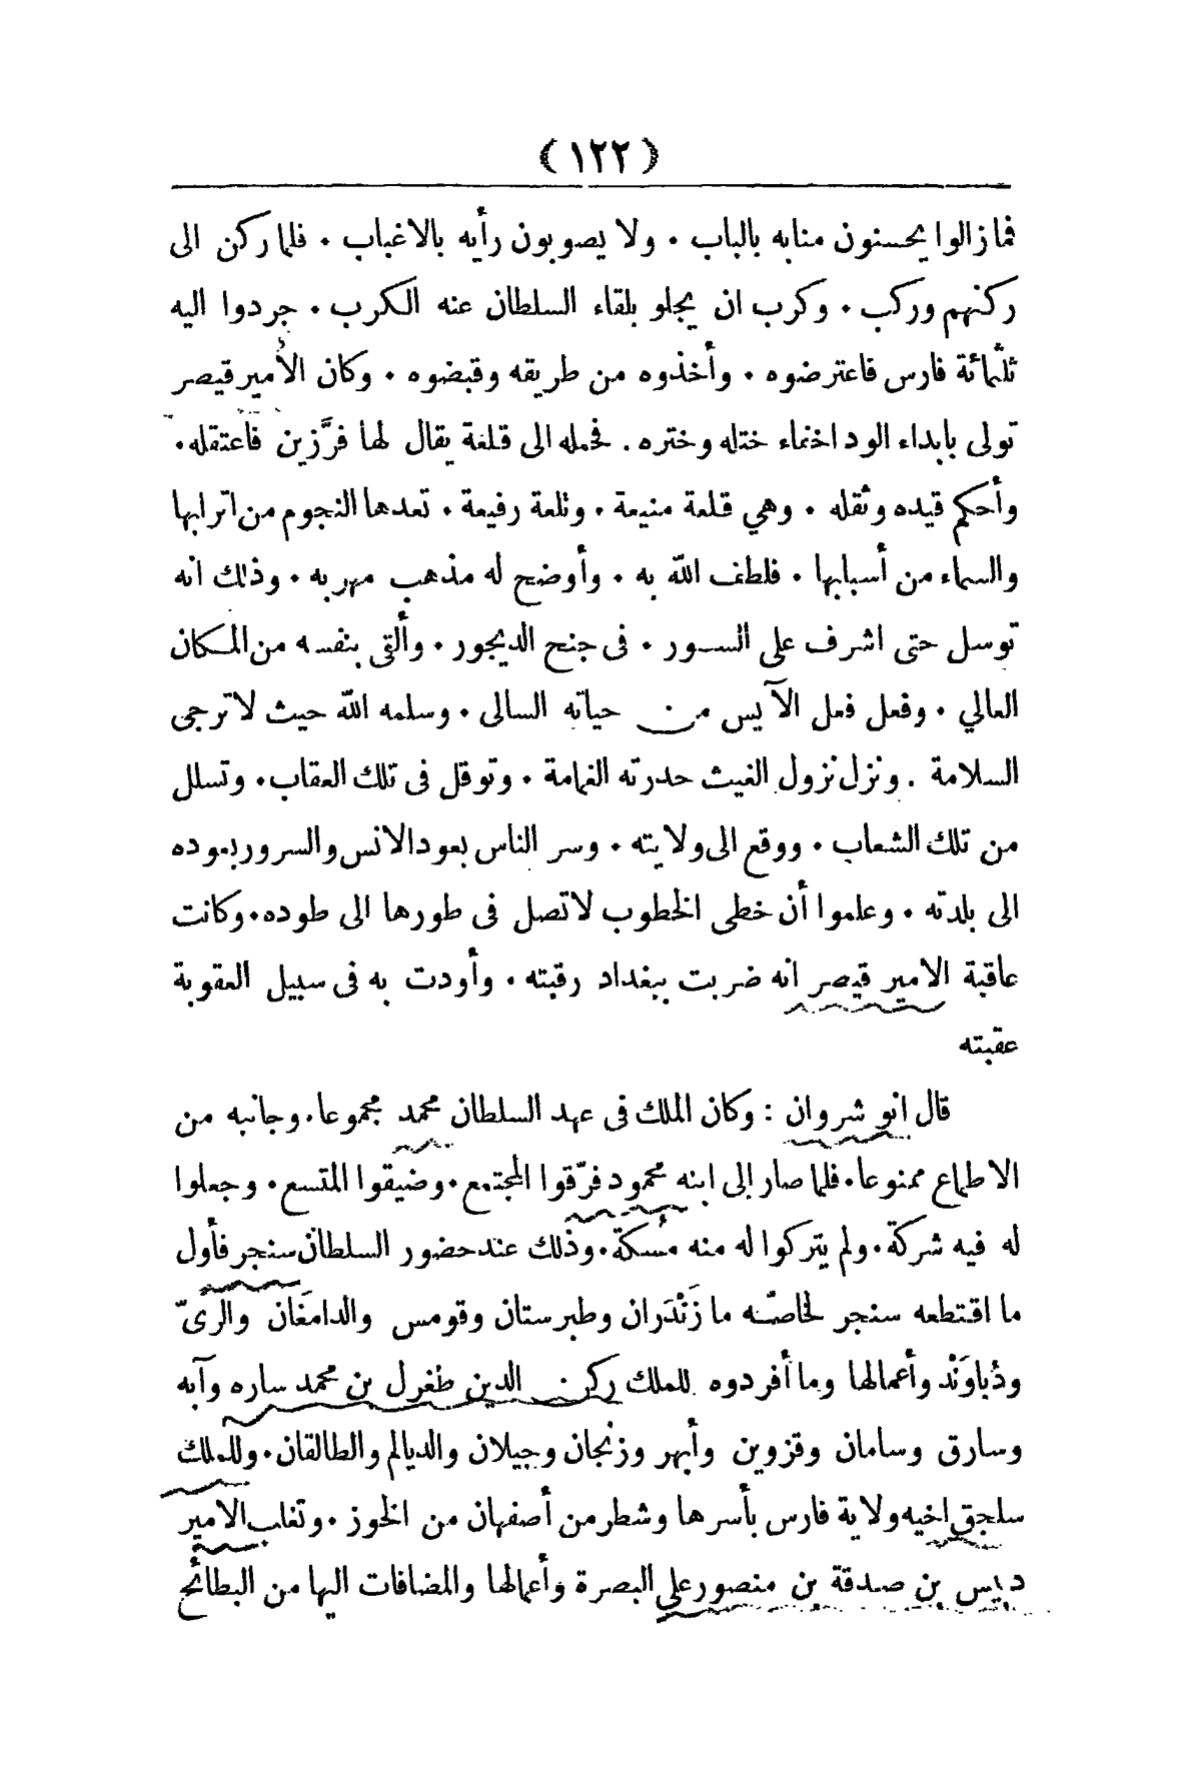 ( ١٢٢ )
فما زالوا يحسنون منابه بالباب ٠ ولا يصوبون رأيه بالاغباب ٠ فلما ركن الى
ركنهم وركب ٠ وكرب ان يجلو بلقاء السلطان عنه الكرب ٠ جردوا اليه
ثلثمائة فارس فاعترضوه ٠ وأخذوه من طريقه وقبضوه ٠ وكان الأمير قيصر
تولى بابداء الود اخفاء ختله وختره . فحمله الى قلعة يقال لها فرَّزين فاعتقله ٠
وأحكم قيده وثقله ٠ وهي قلعة منيعة ٠ وتلعة رفيعة ٠ تعدها النجوم من اترابها
والسماء من أسبابها ٠ فلطف اللّه به ٠ وأوضح له مذهب مهربه ٠ وذلك انه
توسل حتى اشرف على السور ٠ فى جنح الديجور ٠ وألقى بنفسه من المكان
العالي ٠ وفعل فعل الآيس من حياته السالى ٠ وسلمه اللّه حيث لا ترجى
السلامة . ونزل نزول الغيث حدرته الغمامة ٠ وتوقل فى تلك العقاب ٠ وتسلل
من تلك الشعاب ٠ ووقع الى ولايته ٠ وسر الناس بعود الانس والسرور بعوده
الى بلدته ٠ وعلموا أن خطى الخطوب لا تصل فى طورها الى طوده ٠ وكانت
عاقبة الامير قيصر انه ضربت ببغداد رقبته ٠ وأودت به فى سبيل العقوبة
عقبته
قال انو شروان : وكان الملك فى عهد السلطان محمد مجموعا ٠ وجانبه من
الاطماع ممنوعا ٠ فلما صار إلى ابنه محمود فرّقوا المجتمع ٠ وضيقوا المتسع ٠ وجعلوا
له فيه شركة ٠ ولم يتركوا له منه مُسكة ٠ وذلك عند حضور السلطان سنجر فأول
ما اقتطعه سنجر لخاصّته ما زَنْدَران وطبرستان وقومس والدامَغان والرىّ
ودُباوَنْد وأعمالها وما أفردوه للملك ركن الدين طغرل بن محمد ساره وآبه
وسارق وسامان وقزوين وأبهر وزنجان وجيلان والديالم والطالقان ٠ وللملك
سلجق اخيه ولاية فارس بأسرها وشطر من أصفهان من الخوز ٠ وتغلب الامير
دبيس بن صدقة بن منصور على البصرة وأعمالها والمضافات اليها من البطائح